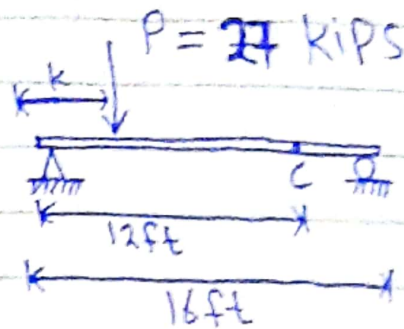 P = 27 KiPS
k
C
12ft
16ft